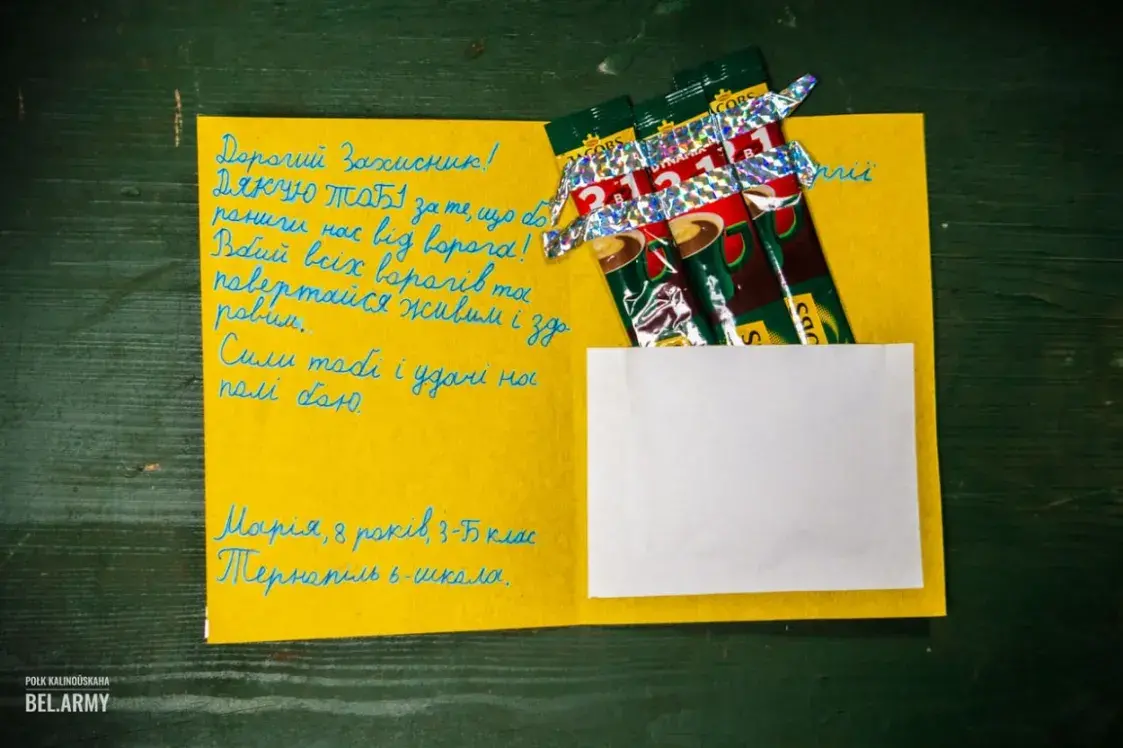 Дорогий Захисник!
ДЯКУЮ ТОБІ за те, що бо
рониш нас від ворога!
Вбий всіх ворогів та
повертайся живим і здо
ровим.
Сили тобі і удачі на
полі бою.
Марія, 8 років, 3-Б клас
Тернопіль 6-школа.
JACOBS
3 в 1
JACOBS
DYNAMIX
3 в 1
JACOBS
3 в 1
POŁK KALINOŬSKAHA
BEL.ARMY